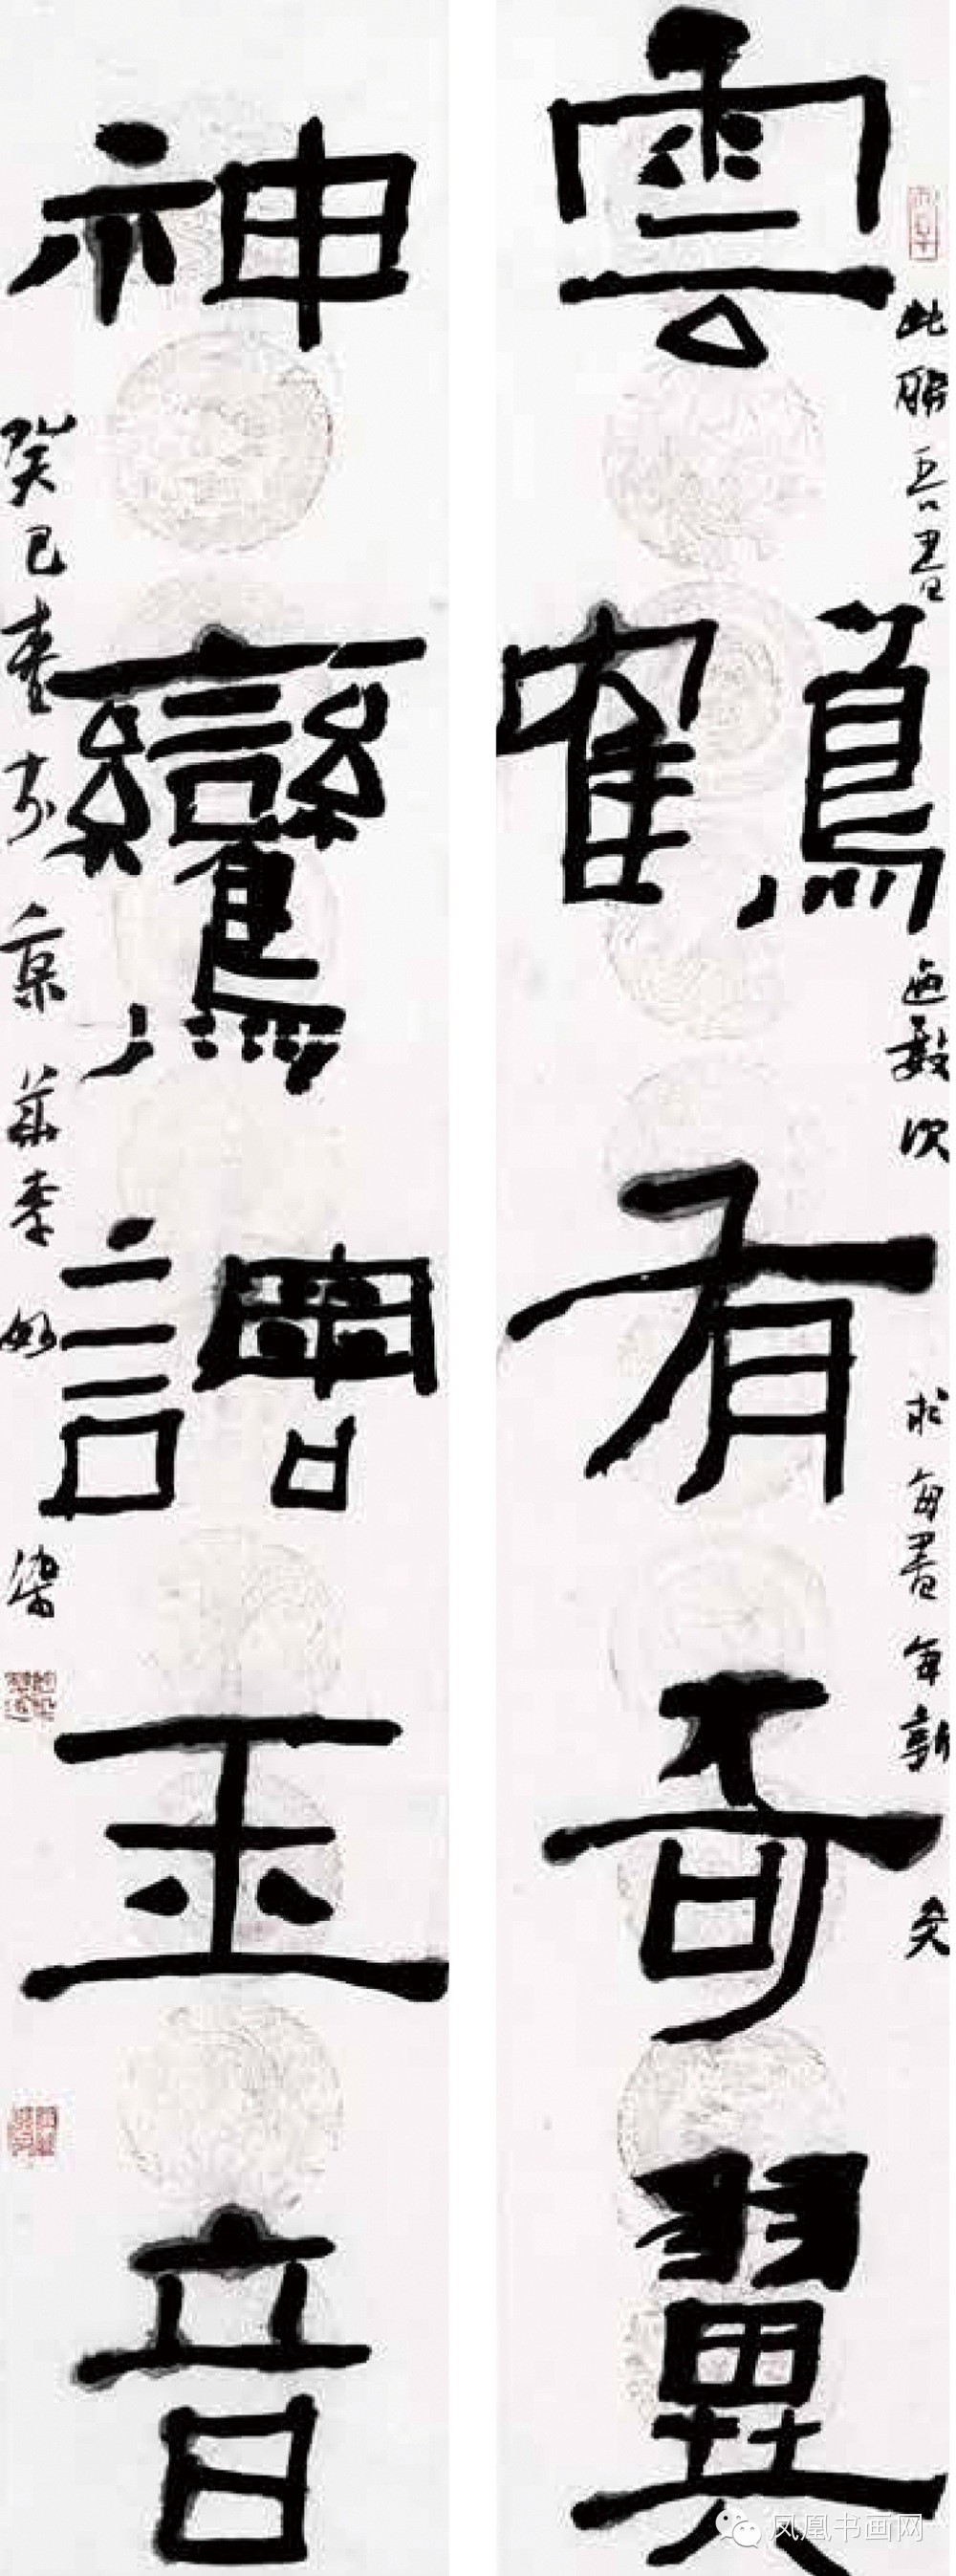 雲鶴有奇翼
此聯吾書數次求每書每新矣
神鸞調玉音
癸巳春於京華李
凤凰书画网